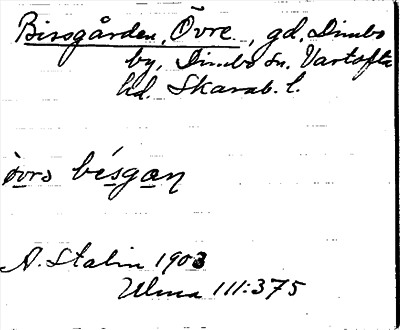 Birsgården, Övre, gd, Dimbo
by, Dimbo sn. Vartofta
hd. Skarab. l.
övrə bésgan
A. Stalin 1903
Ulma 111:375